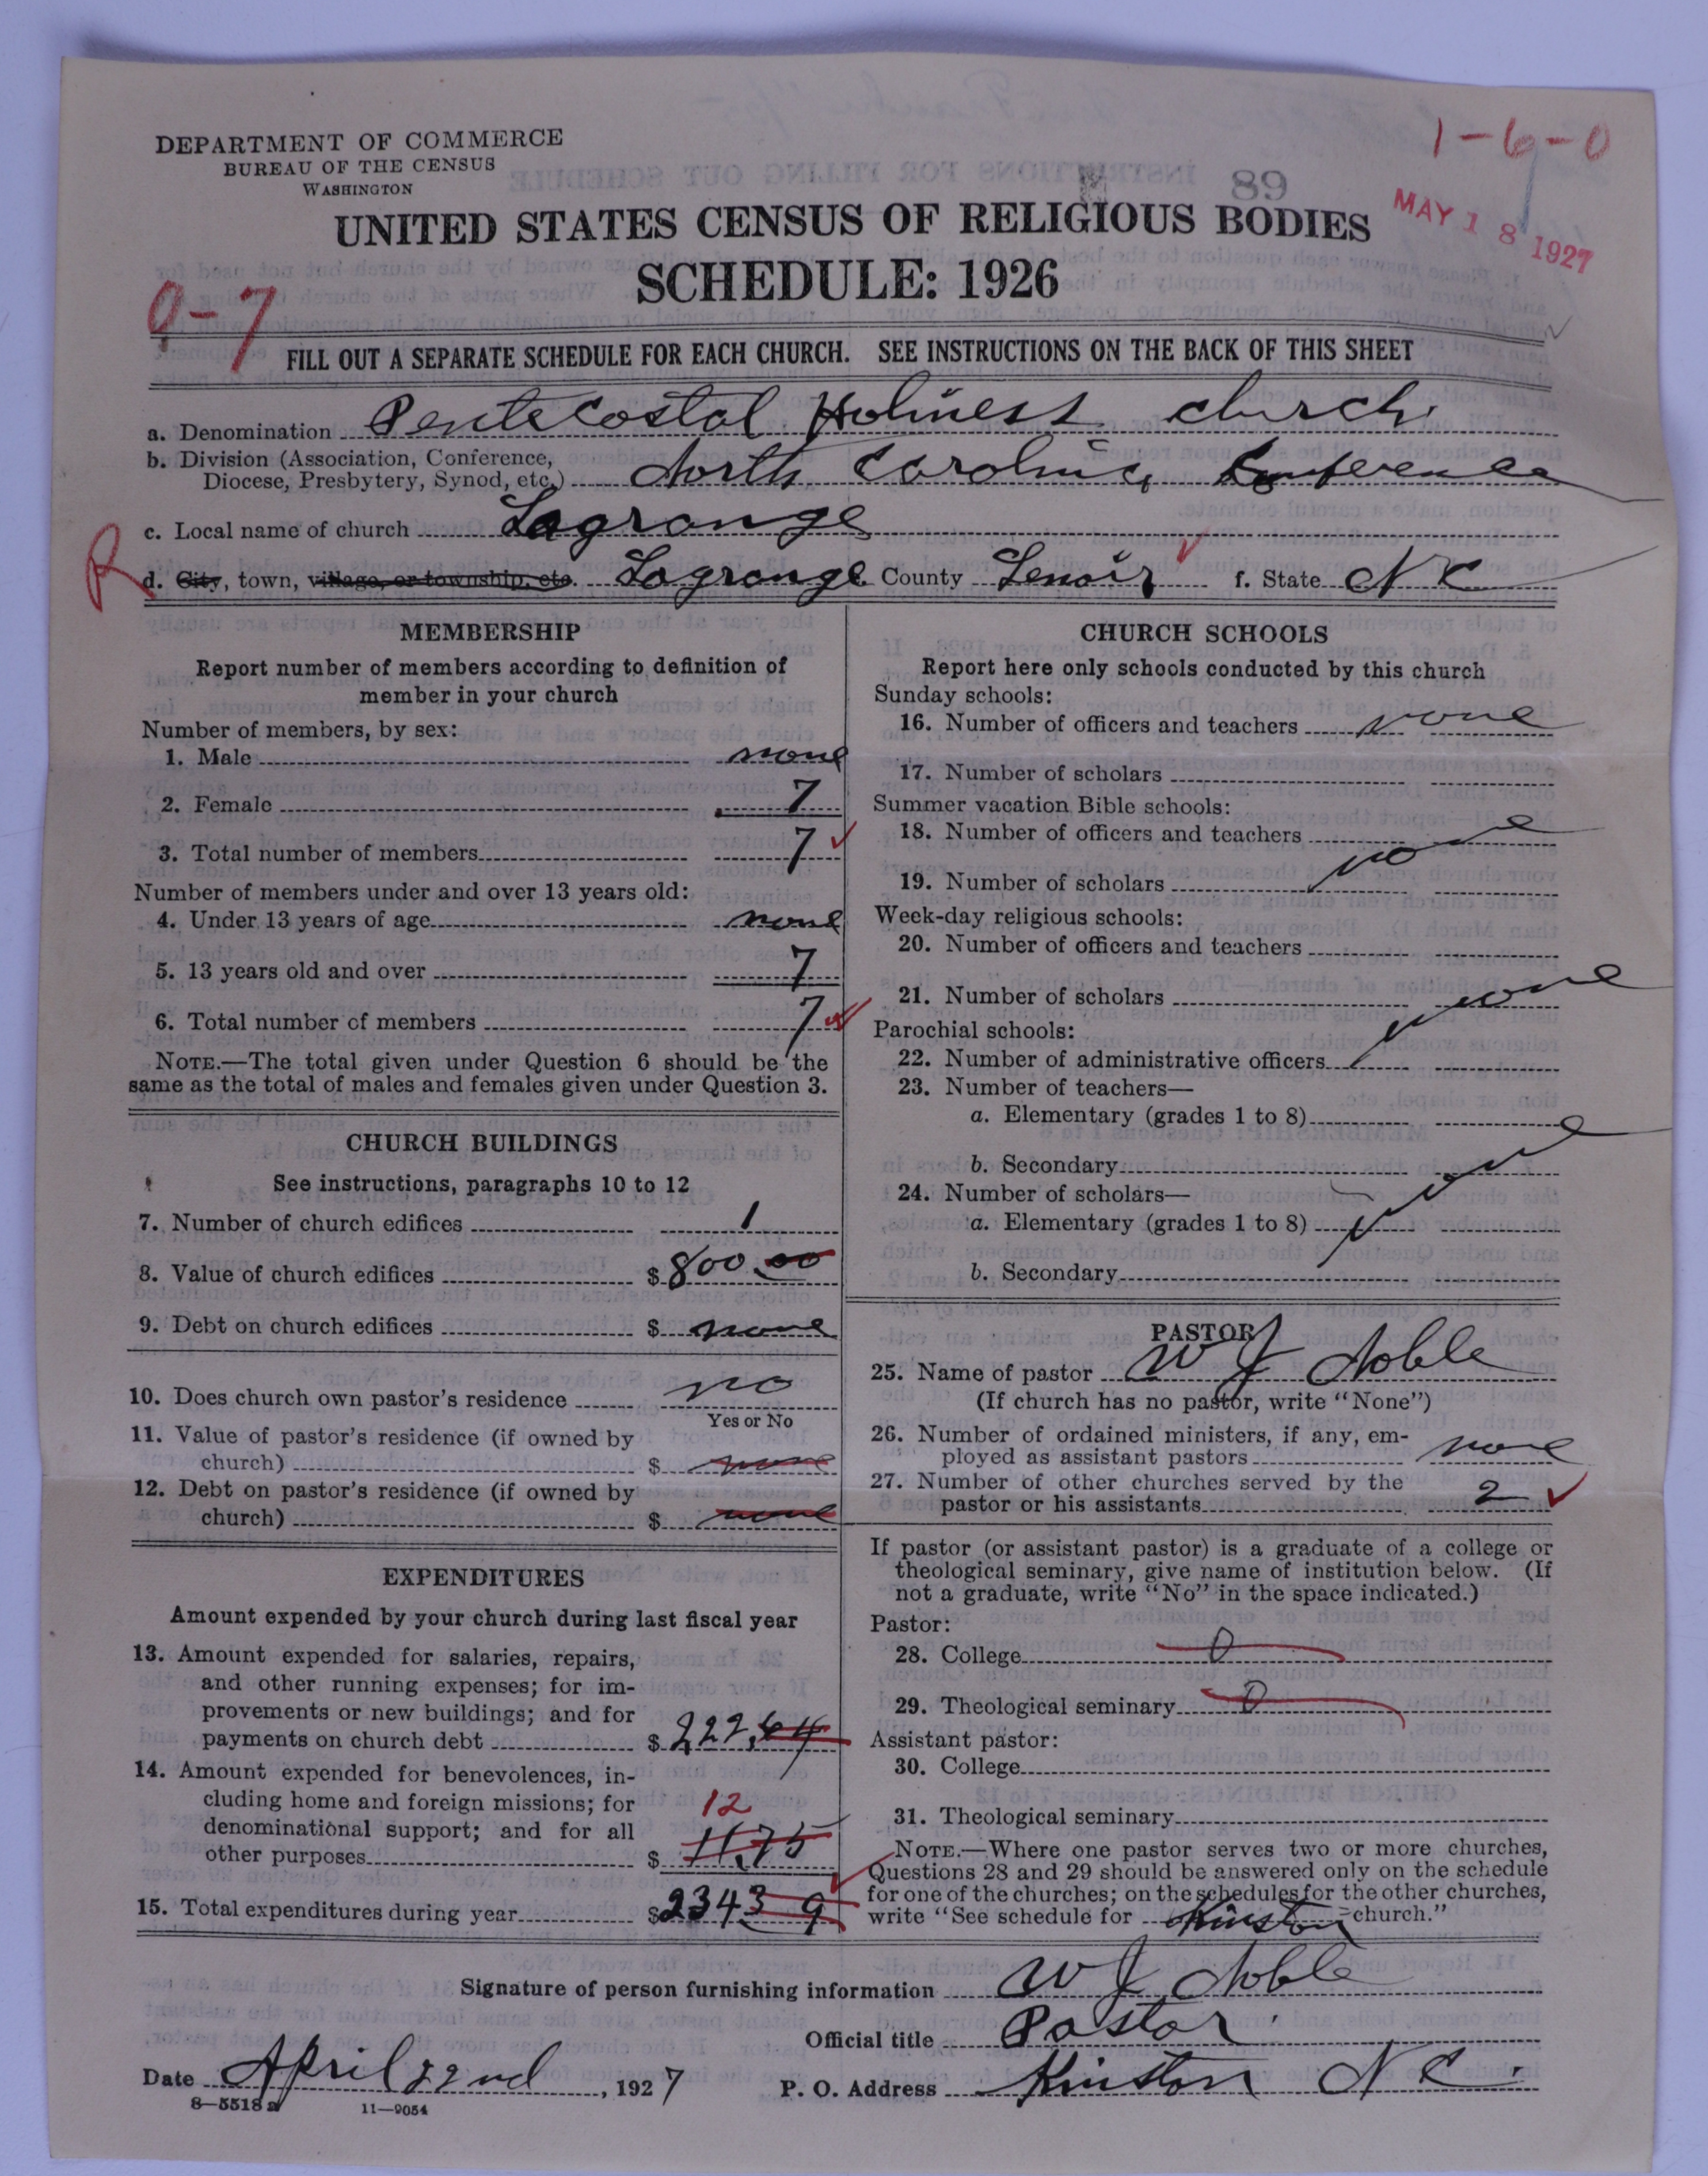 1-6-0
DEPARTMENT OF COMMERCE
BUREAU OF THE CENSUS
WASHINGTON
89
MAY 18 1927
UNITED STATES CENSUS OF RELIGIOUS BODIES
SCHEDULE: 1926
0-7
FILL OUT A SEPARATE SCHEDULE FOR EACH CHURCH. SEE INSTRUCTIONS ON THE BACK OF THIS SHEET
a. Denomination Pentecostal Holiness church
b. Division (Association, Conference, Diocese, Presbytery, Synod, etc.) North Carolina Conference
c. Local name of church Lagrange
R
d. City, town, village, or township, etc. Lagrange County Lenoir f. State N C
MEMBERSHIP
Report number of members according to definition of
member in your church
Number of members, by sex:
1. Male none
2. Female 7
3. Total number of members 7
Number of members under and over 13 years old:
4. Under 13 years of age none
5. 13 years old and over 7
6. Total number of members 7
NOTE.—The total given under Question 6 should be the
same as the total of males and females given under Question 3.
CHURCH BUILDINGS
See instructions, paragraphs 10 to 12
7. Number of church edifices 1
8. Value of church edifices $ 800.00
9. Debt on church edifices $ none
10. Does church own pastor's residence no
Yes or No
11. Value of pastor's residence (if owned by
church) $ none
12. Debt on pastor's residence (if owned by
church) $ none
EXPENDITURES
Amount expended by your church during last fiscal year
13. Amount expended for salaries, repairs,
and other running expenses; for im-
provements or new buildings; and for
payments on church debt $ 222.64
14. Amount expended for benevolences, in-
cluding home and foreign missions; for
12
denominational support; and for all
other purposes $ 11.75
15. Total expenditures during year $ 234 39
CHURCH SCHOOLS
Report here only schools conducted by this church
Sunday schools:
16. Number of officers and teachers none
17. Number of scholars
Summer vacation Bible schools:
18. Number of officers and teachers none
19. Number of scholars
Week-day religious schools:
20. Number of officers and teachers
21. Number of scholars none
Parochial schools:
22. Number of administrative officers
23. Number of teachers—
a. Elementary (grades 1 to 8)
b. Secondary none
24. Number of scholars—
a. Elementary (grades 1 to 8)
b. Secondary
PASTOR
25. Name of pastor W J Noble
(If church has no pastor, write "None")
26. Number of ordained ministers, if any, em-
ployed as assistant pastors none
27. Number of other churches served by the
pastor or his assistants 2
If pastor (or assistant pastor) is a graduate of a college or
theological seminary, give name of institution below. (If
not a graduate, write "No" in the space indicated.)
Pastor:
28. College 0
29. Theological seminary 0
Assistant pastor:
30. College
31. Theological seminary
NOTE.—Where one pastor serves two or more churches,
Questions 28 and 29 should be answered only on the schedule
for one of the churches; on the schedules for the other churches,
write "See schedule for Kinston church."
Signature of person furnishing information W J Noble
Official title Pastor
Date April 22nd, 1927 P. O. Address Kinston N C.
8—5518 a 11—9054